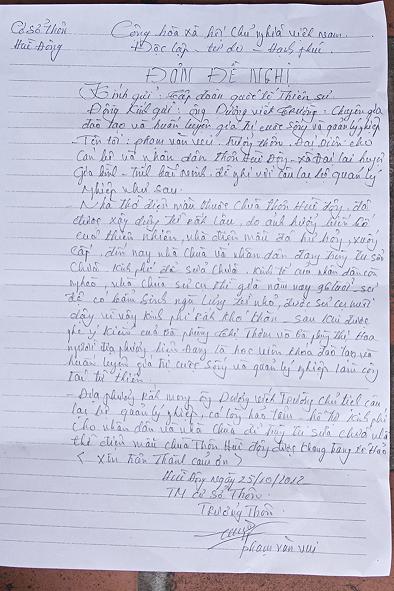 Cơ Sở Thôn Cộng hòa xã hội Chủ nghĩa việt nam
Huề Đông Độc lập - tự do - Hạnh phúc
ĐƠN ĐỀ NGHỊ
Kính gửi: Tập đoàn quốc tế Thiên sư
Đồng Kính gửi: ông Dương việt Trường: Chuyên gia
đào tạo và huấn luyện giá trị cuộc sống và quản lý nghiệp
- Tên tôi: phạm văn vui. trưởng thôn. Đại Diện cho
Cán bộ và nhân dân thôn Huề Đông - xã Đại lai huyện
Gia bình - Tỉnh bắc Ninh. đề nghị với câu lạc bộ quản lý
nghiệp như sau.
Nhà thờ điện mẫu thuộc Chùa Thôn Huề Đông. đã
được xây dựng từ rất lâu, do ảnh hưởng
của thiên nhiên, nhà điện mẫu đã hư hỏng, xuống
Cấp, đến nay nhà Chùa và nhân dân đang tu sửa
Chữa. Kinh phí để sửa Chữa. Kinh tế của nhân dân còn
nghèo, nhà chùa sư cụ thì già năm nay
được sư cụ nuôi
vì vậy kinh phí rất khó khăn. sau khi được
ý kiến của bà phùng thị Thơm và bà phùng thị Hoa
người địa phương hiện đang là học viên khóa đào tạo và
huấn luyện giá trị cuộc sống và quản lý nghiệp làm công
tác từ thiện.
- Địa phương rất mong ông Dương việt Trường chủ tịch câu
lạc bộ quản lý nghiệp, có lòng hảo tâm hỗ trợ kinh phí
Cho nhân dân và nhà Chùa để tu sửa Chữa nhà
thờ điện mẫu chùa Thôn Huề Đông được khang trang
< Xin trân thành cảm ơn >
Huề Đông ngày 25/10/2012
TM Cơ Sở Thôn
Trưởng Thôn
phạm văn vui